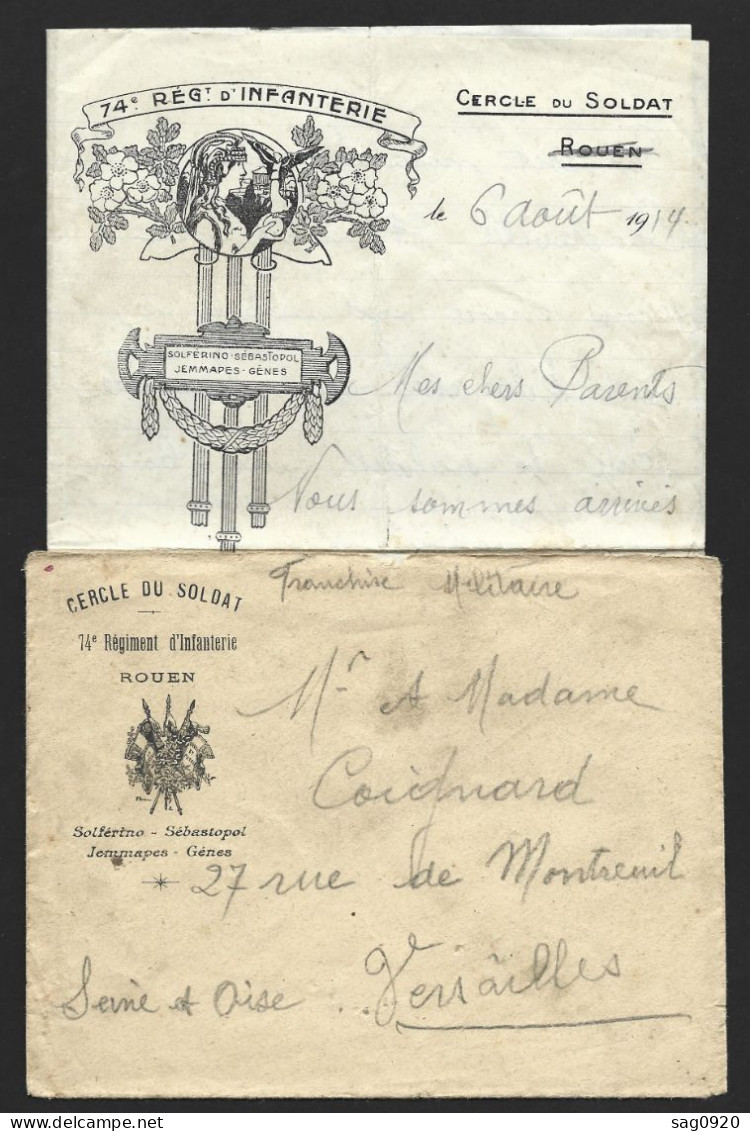 74e RÉGT D'INFANTERIE
CERCLE DU SOLDAT
ROUEN
le 6 août 1914
SOLFÉRINO-SÉBASTOPOL
JEMMAPES-GÊNES
Mes chers Parents
Nous sommes arrivés
Franchise Militaire
CERCLE DU SOLDAT
74e Régiment d'Infanterie
ROUEN
Solférino - Sébastopol
Jemmapes - Gênes
Mr et Madame
Coignard
27 rue de Montreuil
Versailles
Seine et Oise
sag0920